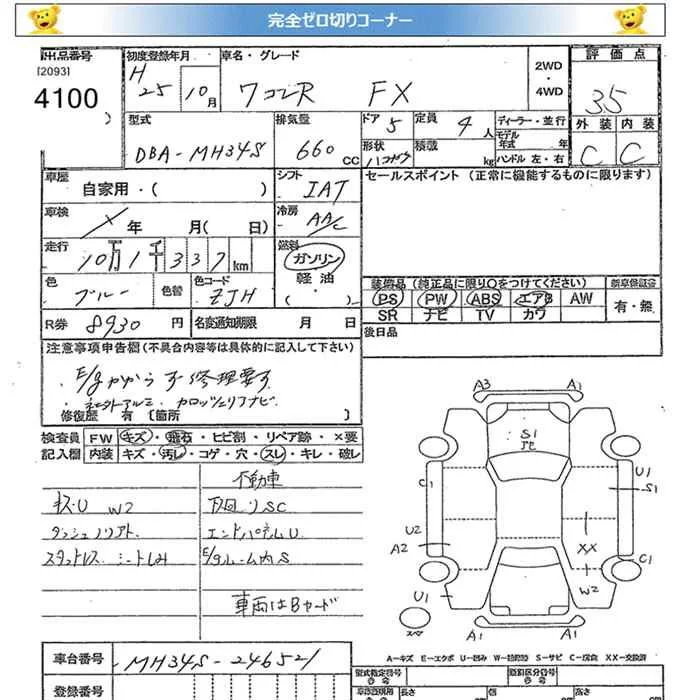 完全ゼロ切りコーナー
出品番号 [2093] 4100 )
初度登録年月 H 25 10 月
車名・グレード ワゴンR FX
2WD・4WD
評価点 3.5
外装 C 内装 C
型式 DBA-MH34S
排気量 660 cc
ドア 5 定員 4 人
形状 積載 kg
ディーラー・並行
モデル年式 年
ハンドル 左・右
車歴 自家用・( )
シフト IAT
セールスポイント (正常に機能するものに限ります)
車検 年 月( 日)
冷房 AAC
走行 10万1千337 km
燃料 ガソリン 軽油 ・( )
色 ブルー 色替 色コード ZJH
装備品 (純正品に限り○をつけてください) 新車保証書
PS PW ABS エアB AW
SR ナビ TV カワ
有・無
R券 8930 円 名変通知期限 月 日
後日品
注意事項申告欄(不具合内容等は具体的に記入して下さい)
E/gかからず 修理要す
社外アルミ カロッツェリアナビ
修復歴 有 (箇所 )
検査員 FW キズ・飛石・ヒビ割・リペア跡・×要
記入欄 内装 キズ・汚れ・コゲ・穴・スレ・キレ・破レ
不動車
キズ・U W2 下回りSC
エンドパネルU
スタットレス シートしみ E/gルーム内S
車両はBヤード
A3 A1
S1
C1 U1 S1
U2 A2 XX
C1 W2
U1
スペア A1 A1
A-キズ E-エクボ U-凹み S-サビ C-腐食 XX-交換済
車台番号 MH34S-246521
登録番号
型式指定番号 類別区分番号